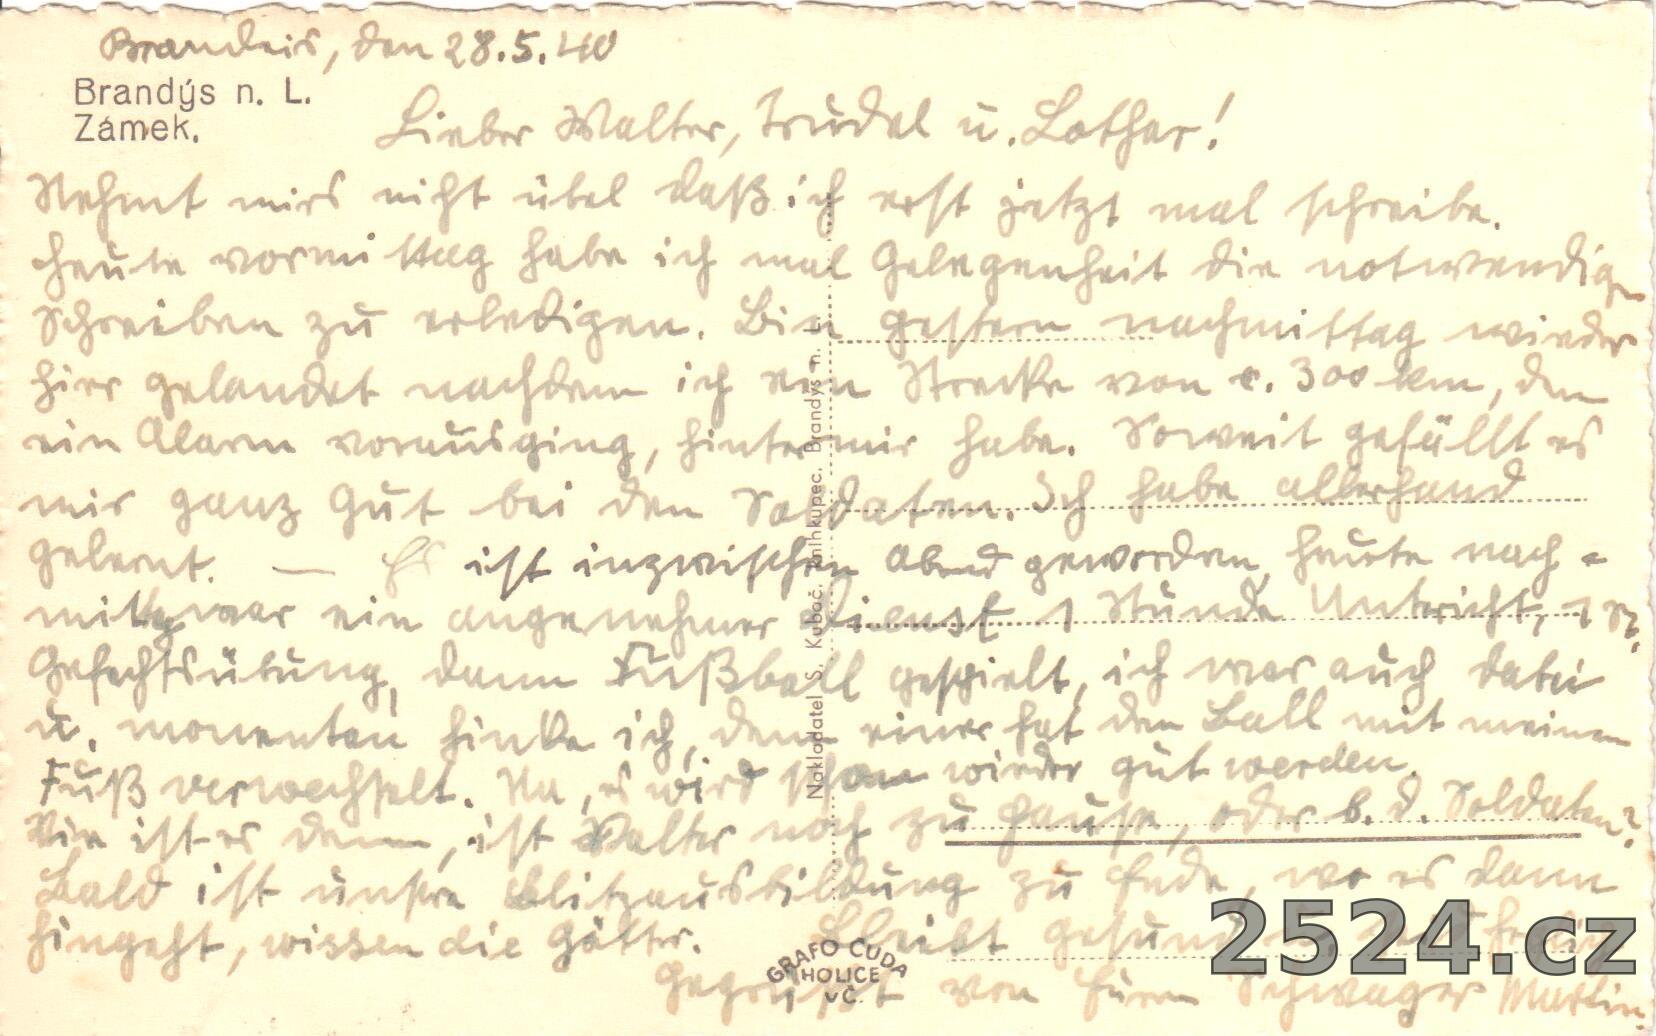 Brandeis, den 28.5.40
Brandýs n. L.
Zámek.
Lieber Walter, Trudel u. Lothar!
Nehmt mirs niht übel daß ich erst jetzt mal schreibe.
Heute vormittag habe ich mal Gelegenheit die notwendigen
Schreiben zu erledigen. Bin gestern nachmittag wieder
hier gelandet nachdem ich ein Strecke von c. 300 km, dem
ein Alarm vorausging, hinter mir habe. Soweit gefällt es
mir ganz gut bei den Soldaten. Ich habe allerhand
gelernt. — Es ist inzwischen Abend geworden, heute nach-
mittag war ein angenehmer Dienst 1 Stunde Unterricht, 1 St.
Gefechtsübung, dann Fußball gespielt, ich war auch dabei
u. momentan hinke ich, denn einer hat den Ball mit meinem
Fuß verwechselt. Na, es wird schon wieder gut werden.
Wie ist es denn, ist Walter noch zu Hause, oder b. d. Soldaten?
Bald ist unsre Blitzausbildung zu Ende, wo es dann
hingeht, wissen die Götter. Bleibt gesund
Gegrüßt von Eurem Schwager Martin.
Nakladatel S. Kubač, knihkupec, Brandýs n. L.
GRAFO ČUDA
HOLICE
v Č.
2524.cz